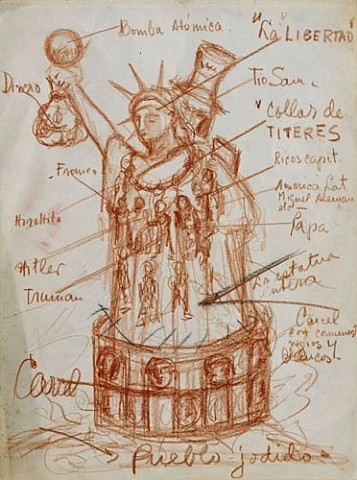 Bomba Atómica.
"La" LIBERTAD
Dinero
Tio Sam
collar de
TITERES
Franco
Ricos capit.
America Lat
Miguel Aleman
etc
Hiroito
Papa
Hitler
La estatua
entera
Truman
Carcel
con comunes
negros y
blancos
Carcel
Pueblo jodido